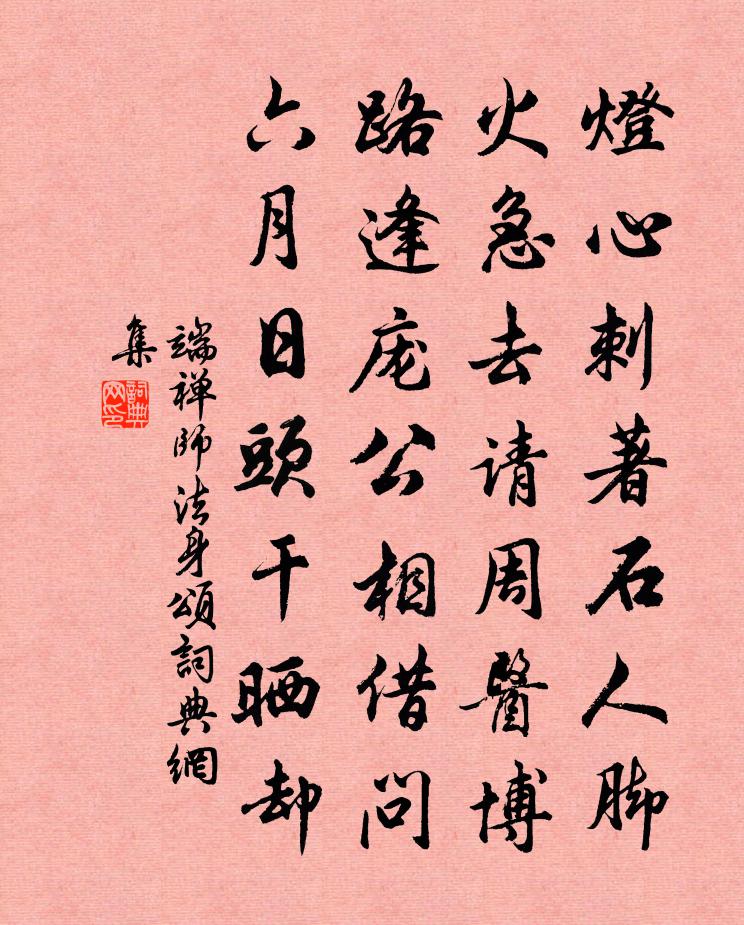 燈心刺著石人脚
火急去请周醫博
路逢庞公相借问
六月日頭干晒却
端禅师法身頌詞典網
集
詞典網印